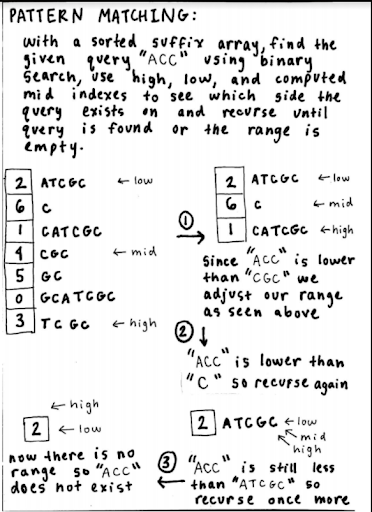 PATTERN MATCHING:
with a sorted suffix array, find the
given query "ACC" using binary
search, use high, low, and computed
mid indexes to see which side the
query exists on and recurse until
query is found or the range is
empty.
2 ATCGC ← low
6 C
1 CATCGC
4 CGC ← mid
5 GC
0 GCATCGC
3 TCGC ← high
① →
2 ATCGC ← low
6 C ← mid
1 CATCGC ← high
Since "ACC" is lower
than "CGC" we
adjust our range
as seen above
② ↓
"ACC" is lower than
"C" so recurse again
2 ATCGC ← low
mid
high
③ ←
"ACC" is still less
than "ATCGC" so
recurse once more
← high
2 ← low
now there is no
range so "ACC"
does not exist